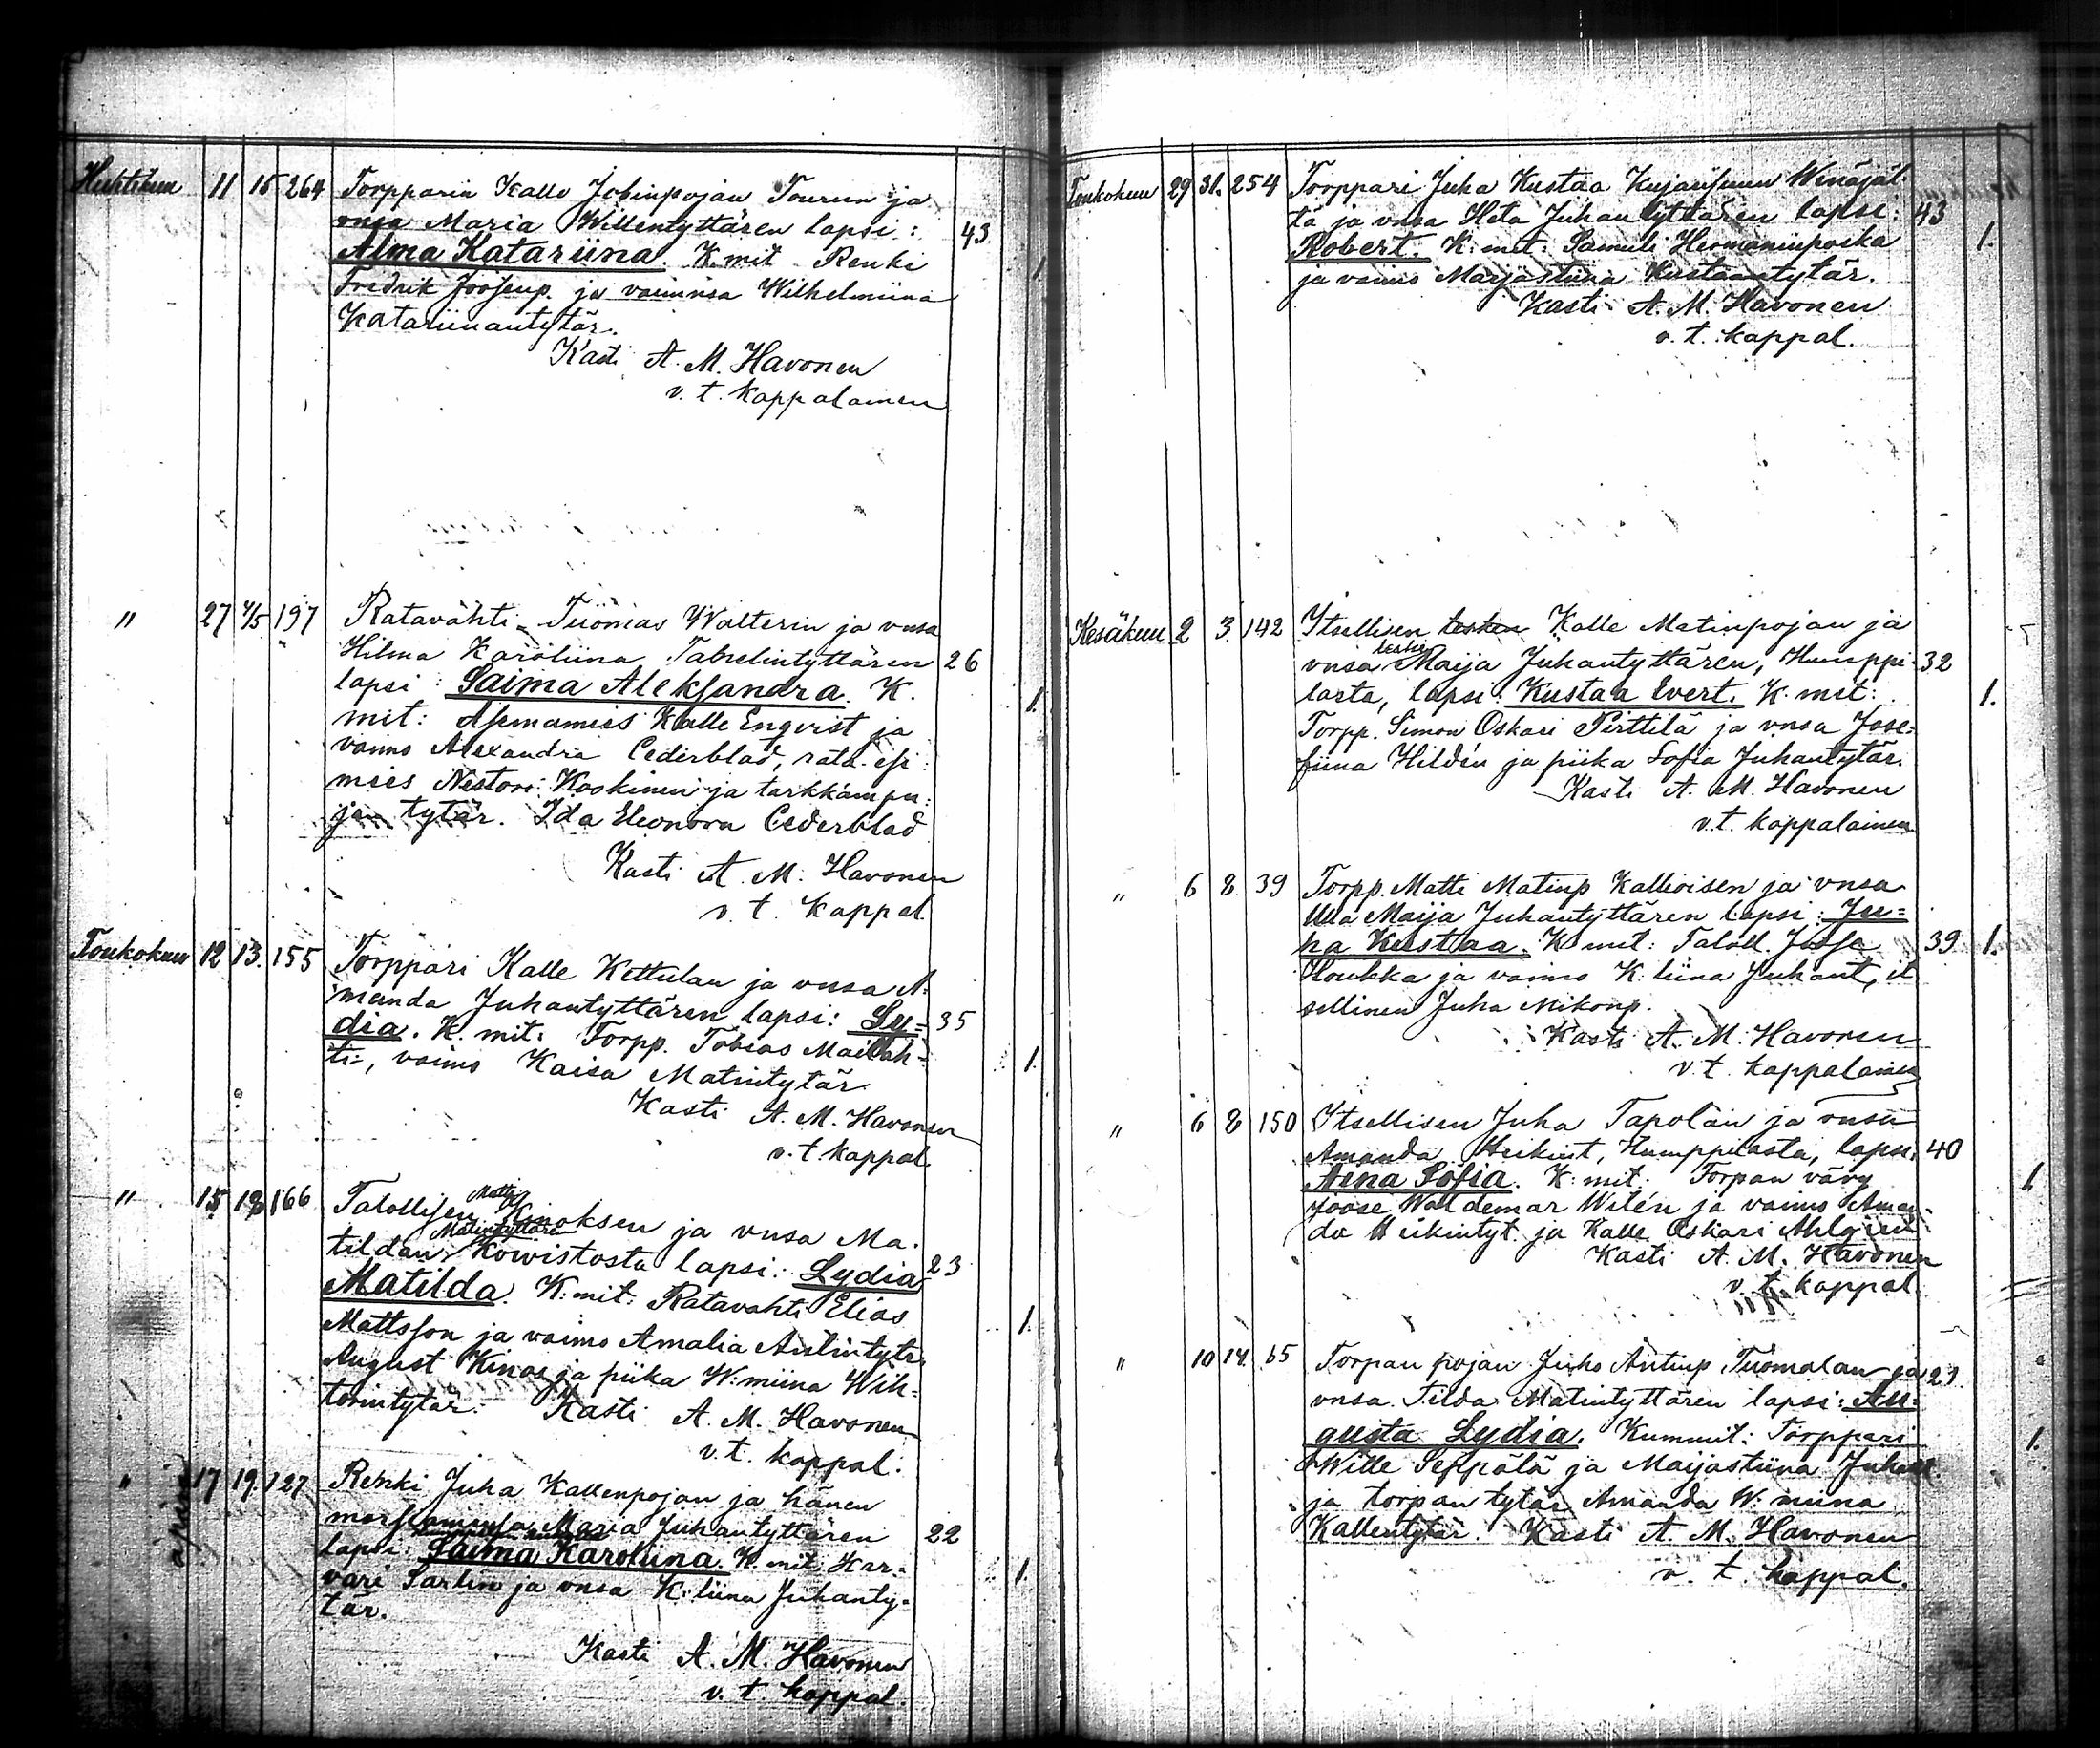 Huhtikuu 11 15 264 Torpparin Kalle Jobinpojan Tourun ja
vnsa Maria Willentyttären lapsi: 43
Alma Katariina. K. mit Renki 1.
Fredrik Joosenp. ja vaimnsa Wilhelmiina
Katariinantytär.
Kasti A. M. Havonen
v. t. kappalainen
" 27 4/5 197 Ratavahti Tuomas Walterin ja vnsa
Hilma Karoliina Taavelintyttären 26
lapsi: Saima Aleksandra. K. 1.
mit: Asemamies Kalle Enqvist ja
vaimo Alexandra Cederblad, rata esi:
mies Nestori Koskinen ja tarkkampu:
jan tytär. Ida Eleonora Cederblad
Kasti A. M. Havonen
v. t. kappal.
Toukokuu 12 13. 155 Torppari Kalle Kettulan ja vnsa A.
manda Juhantyttären lapsi: Ly= 35
dia. K. mit: Torpp. Tobias Mailah- 1.
ti, vaimo Kaisa Matintytär.
Kasti A. M. Havonen
v. t. kappal.
" 15 18 166 Talollisen Matti Kinoksen ja vnsa Ma.
tildan Matintyttären Kowistosta lapsi: Lydia 23
Matilda. K. mit: Ratavahti Elias 1.
Mattsson ja vaimo Amalia
August Kinos ja piika W:miina Wih=
torintytär. Kasti A. M. Havonen
v. t. kappal.
" äpärä 17 19. 127 Renki Juha Kallenpojan ja hänen
morsiamensa Maria Juhantyttären 22
lapsi: Saima Karoliina. K. mit: 1.
vari Sarlin ja vnsa K:liina Juhanty=
tär.
Kasti A. M. Havonen
v. t. kappal.
Toukokuu 29 31. 254 Torppari Juha Kustaa Kujansuun Wenäjäl.
tä ja vnsa Heta Juhantyttären lapsi: 43
Robert. K: mit: Samuli Hermaninpoika 1.
ja vaimo Maijastiina Kustaantytär.
Kasti A. M. Havonen
v. t. kappal.
Kesäkuu 2 3. 142 Itsellisen lesken Kalle Matinpojan ja
vnsa lesken Maija Juhantyttären, Humppi- 32
lasta, lapsi: Kustaa Evert. K. mit: 1.
Torpp. Simon Oskari Pirttilä ja vnsa Jose=
fiina Hildén ja piika Sofia Juhantytär.
Kasti A. M. Havonen
v.t. kappalainen
" 6 8. 39 Torpp. Matti Matinp Kallioisen ja vnsa
Ulla Maija Juhantyttären lapsi: Ju=
ha Kustaa. K. mit: Taloll. Juose 39 1.
Houkka ja vaimo K:liina Juhant, it
sellinen Juha Mikonp.
Kasti A. M. Havonen
v. t. kappalainen
" 6 8 150 Itsellisen Juha Tapolan ja vnsa
Amanda Heikint, Humppilasta, lapsi 40
Aina Sofia. K: mit: Torpan vävy 1.
Joose Waldemar Witén ja vaimo Aman-
da Heikintyt. ja Kalle Oskari Ahlgren
Kasti A. M. Havonen
v. t. kappal.
" 10 14. 65 Torpan pojan Juho Antinp Tuomolan ja 29
vnsa Tilda Matintyttären lapsi: Au=
gusta Lydia. Kummit: Torppari 1.
Wille Seppälä ja Maijastiina Juhant.
ja torpan tytär Amanda W:miina
Kallentytär. Kasti A. M. Havonen
v. t. kappal.